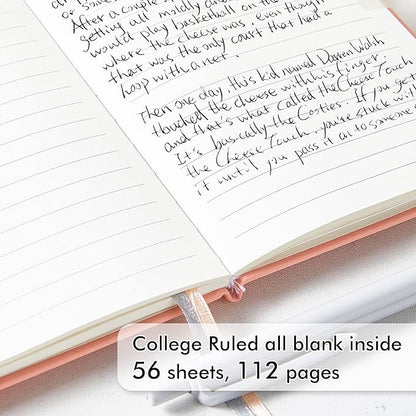 After a couple
getting all mildly and
would play basketball on the
where the cheese was, even though
that was the only court that had a
hoop with a net.
Then one day, this kid named Darren Walsh
touched the cheese with his finger,
and that's what called the Cheese Touch
It's basically the Cooties. If you get
the Cheese Touch, you're stuck with
it until you pass it on to someone
College Ruled all blank inside
56 sheets, 112 pages